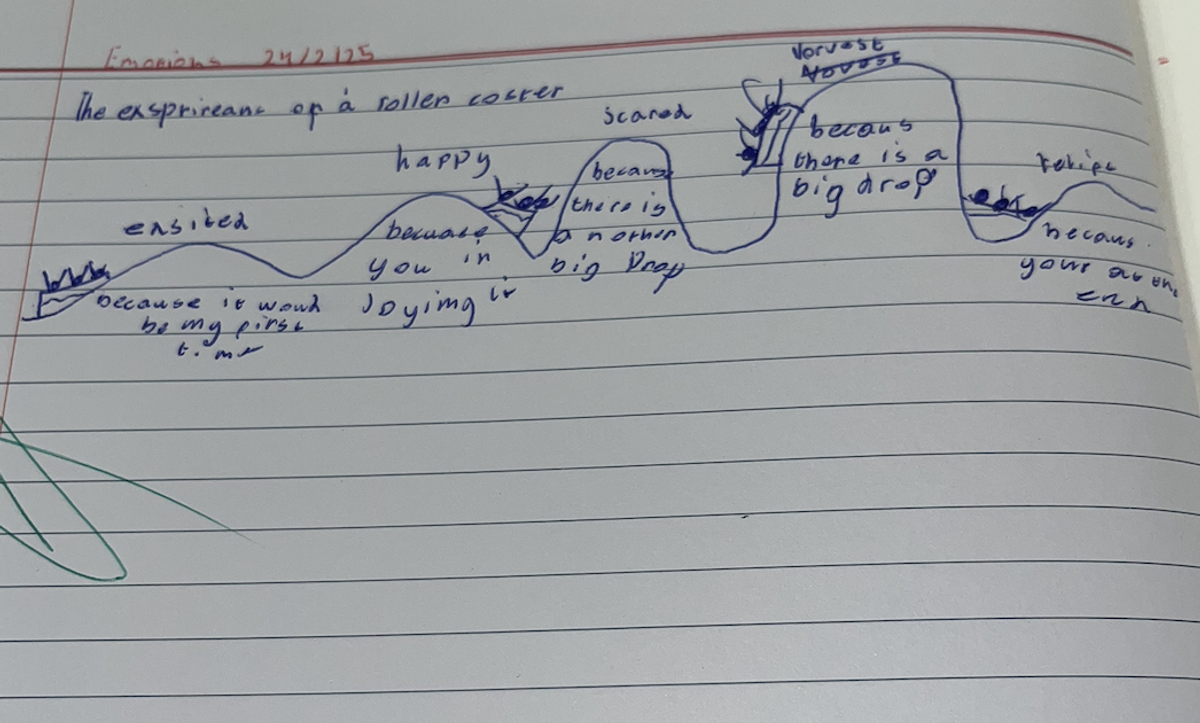 Emoions 24/2/25
The exsprireanc of a roller coster
ensited
because it woud
be my first
time
happy
becuase
you in
Joying it
scared
becaus
there is
a nother
big Drop
Norvest
Novest
becaus
there is a
big drop
relipe
becaus
your at the
enn